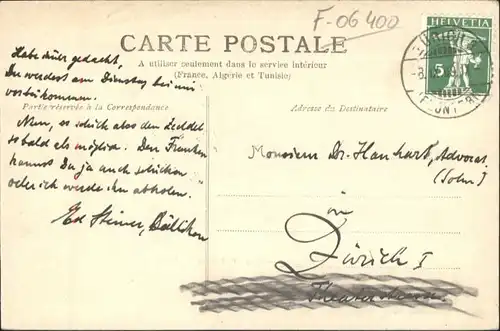 F-06400
HELVETIA
5
CARTE POSTALE
A utiliser seulement dans le service intérieur
(France, Algérie et Tunisie)
Partie réservée à la Correspondance
Adresse du Destinataire
Habe immer gedacht,
Du werdest am Dienstag bei mir
vorbeikommen.
Nun, so schick also den Zeddel
sobald als möglich. Den Franken
kannst Du ja auch schicken
oder ich werde ihn abholen.
Ed Steiner, Dällikon
Monsieur Dr. Hauhart, Advocat
(Sohn)
in
Zürich I